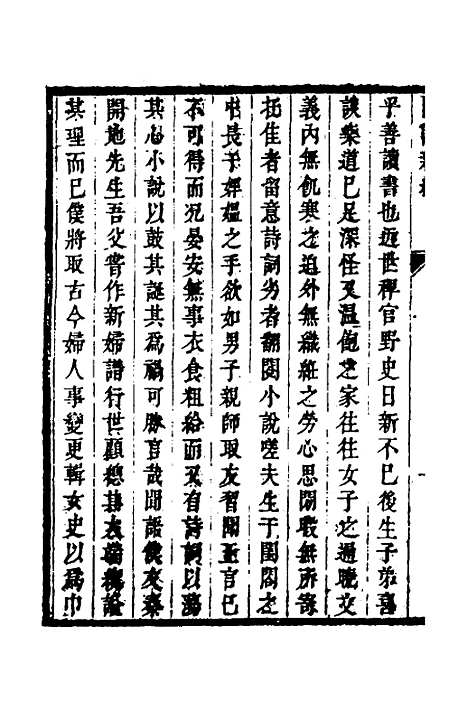 乎善讀書也近世稗官野史日新不已後生子弟喜
談樂道已足深怪又溫飽之家往往女子之通曉文
義內無飢寒之迫外無織紝之勞心思閒暇無所寄
托佳者留意詩詞劣者翻閱小說嗟夫生于閨閤之
中長于婢媼之手欲如男子親師取友習聞正言已
不可得而況晏安無事衣食粗給而又有詩詞以蕩
其心小說以鼓其誕其為禍可勝言哉聞語僕友秦
開地先生吾父嘗作新婦譜行世顧總其大端概論
其理而已僕將取古今婦人事變更輯女史以為巾